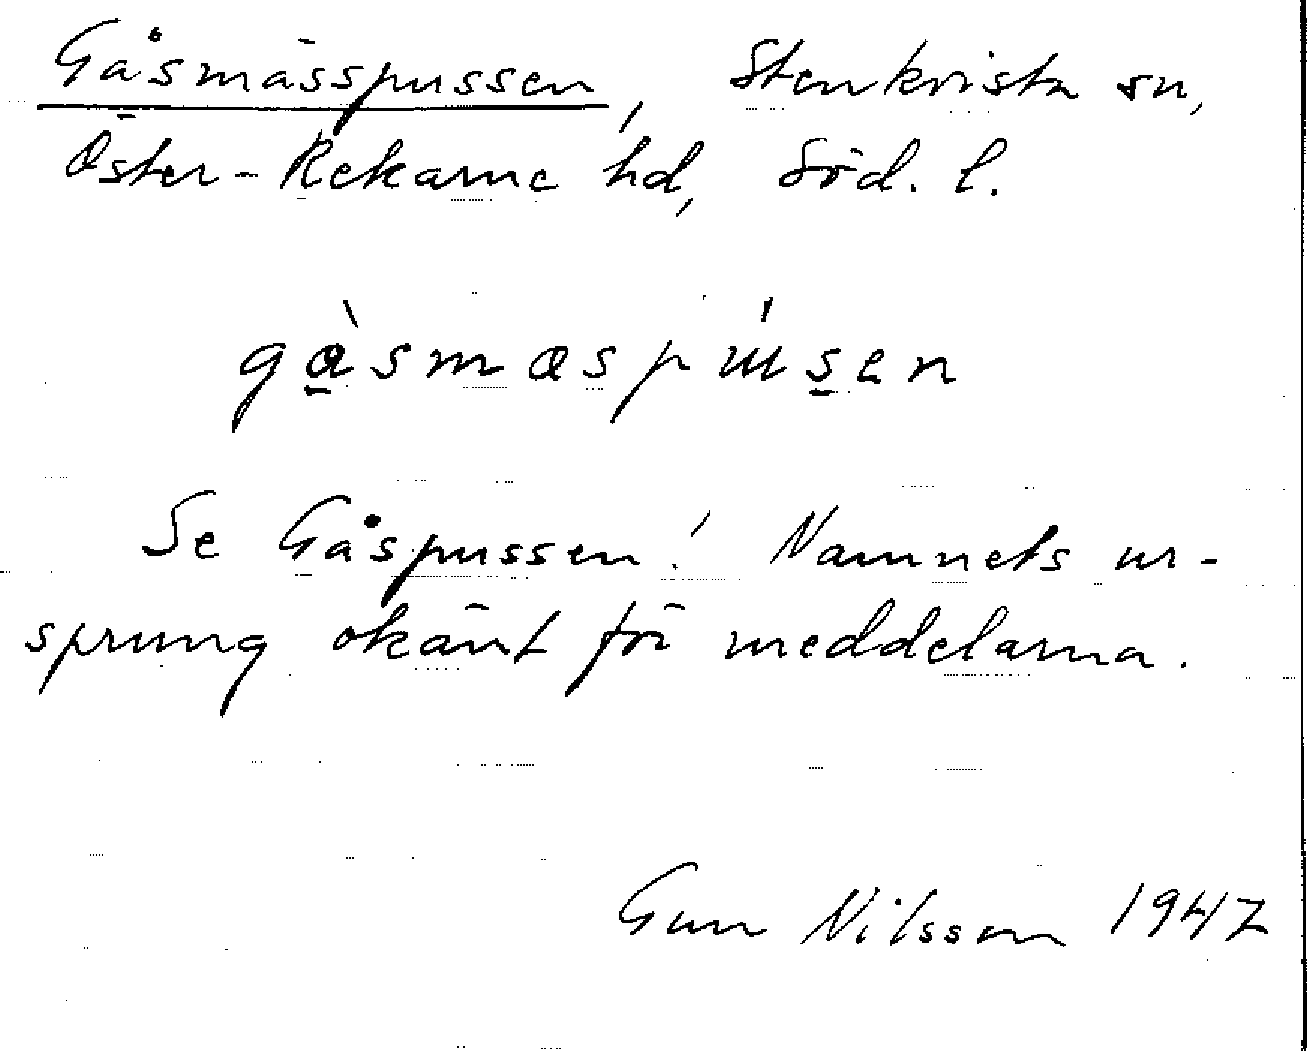 Gåsmässpussen, Stenkvista sn,
Öster-Rekarne hd, Söd. l.
gɑ̠̀smæspúsen
Se Gåspussen! Namnets ur-
sprung okänt för meddelarna.
Gun Nilsson 1947